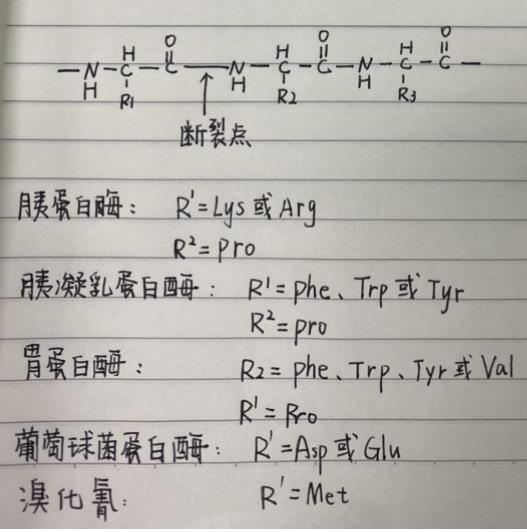 —N—C—C—N—C—C—N—C—C—
H H O H H O H H O
R1 R2 R3
断裂点
胰蛋白酶: R'=Lys或Arg
R²=Pro
胰凝乳蛋白酶: R'=phe、Trp或Tyr
R²=pro
胃蛋白酶: R2=phe、Trp、Tyr或Val
R'=Pro
葡萄球菌蛋白酶: R'=Asp或Glu
溴化氰: R'=Met